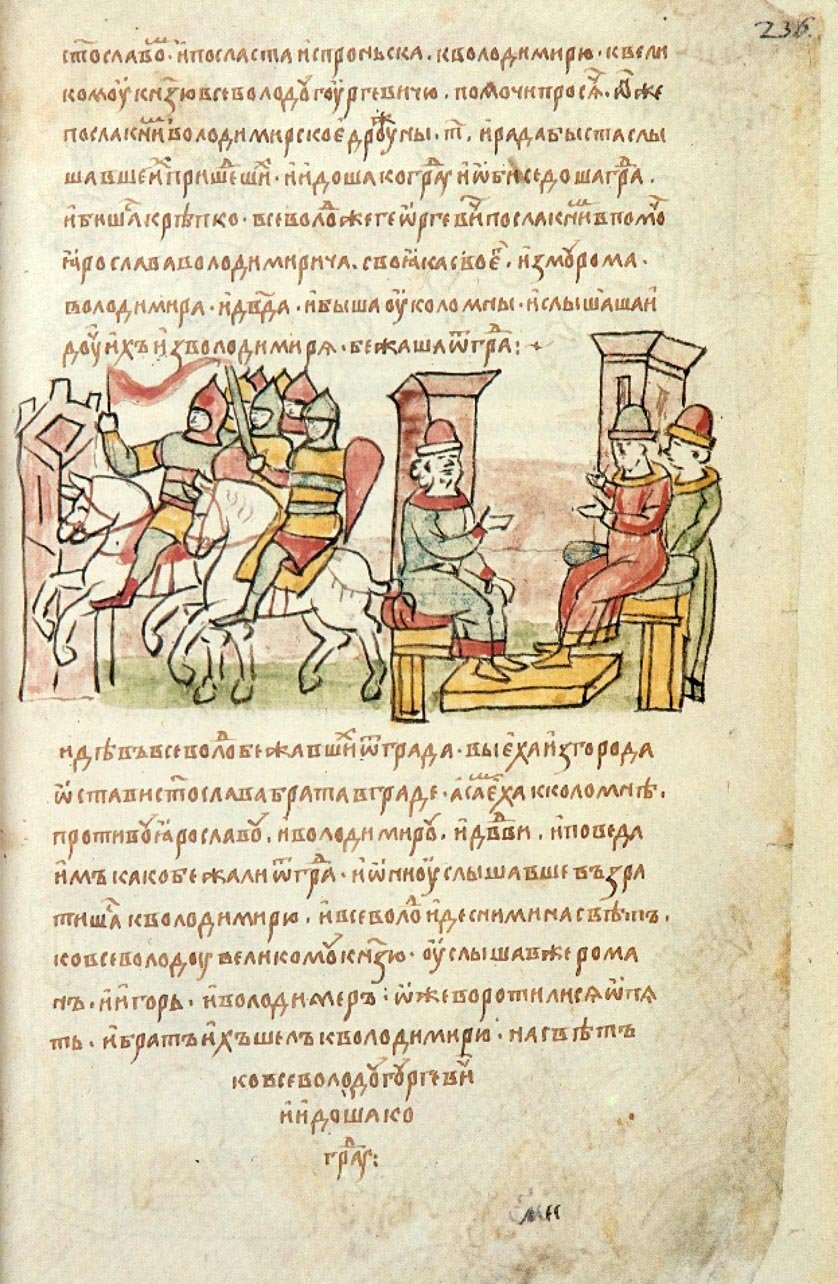 236.
ст҃ославоⷨ · и҆посластаи҆спроньска · кволодимирю · квели
комоу҆кнѧ҃зювсеволодоугоу҆ргевичю · помочипросѧ · ѡ҆нже
послакниⷨволодимирскоеⷣроуны · т҃ · и҆радабысташлы
шавшеи҆хпришеⷣшиⷯ · и҆и҆дошакограⷣу и҆ѡ҆биседошаграⷣ ·
и҆бишаⷭкрѣпко · всеволоⷣжегеѡ҆ргевиⷱпослакниⷨвпомоⷱ
ꙗ҆рослававолодимирича · своꙗкасвоеⷢ · и҆змурома ·
володимира · и҆дв҃да · и҆бышаоу҆коломны · и҆слышашаи҆
доуⷳи҆хъи҆зволодимирѧ · бежашаѿграⷣ :
видѣвъвсеволоⷣбежавшиⷯѿграда · выеха и҆згорода
ѡ҆ставист҃ославабратавграде · а҆самⷨехакколомнѣ ·
противоуꙗ҆рославоу · и҆володимироу · и҆дв҃дви · и҆поведа
и҆мъкакобежалиѿграⷣ · и҆ѡ҆ниоу҆слышавшевъзра
тишаⷭкволодимирю · и҆всеволоⷣи҆десниминасвѣтъ ·
ковсеволодоувеликомоукнѧ҃зю · оу҆слышавжерома
нъ · и҆и҆горь · и҆володимеръ · ѡ҆жеворотилисяѡ҆пя
ть · и҆братъи҆хъшелъкволодимирю · насвѣтъ
ковсеволодоугоургъвиⷱ
и҆и҆дошако
граⷣу :